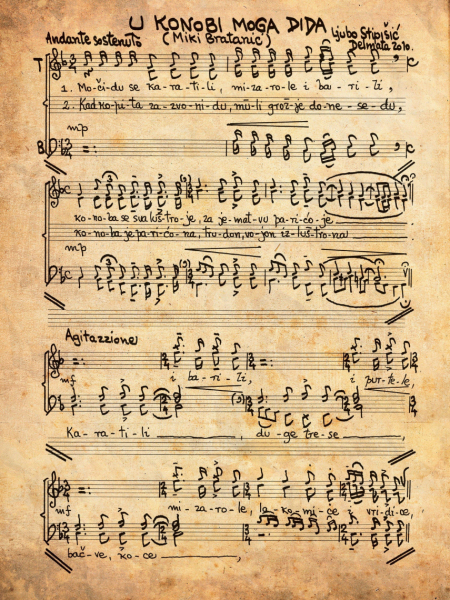 U KONOBI MOGA DIDA
Andante sostenuto (Miki Bratanić) Ljubo Stipišić
Delmata 2010.
T
1. Mo-či-du se ka-ra-ti-li, mi-za-ro-le i ba-ri-li,
2. Kad ko-pi-ta za-zvo-ni-du, mùli groz-je do-ne-se-du,
mp
B
ko-no-ba se sva luš-tro-je, za je-mat-vu pa-ri-ćo-je
ko-no-ba je pa-ri-ćo-na, tru-don, vo-jon iz-luš-tro-na
mp
Agitazzione
mf i ba-ri-li, i pur-te-le,
Ka-ra-ti-li, du-ge tre-se
mf mi-za-ro-le, lo-ko-mi-ce i vri-di-ce,
bač-ve, ko-ce,